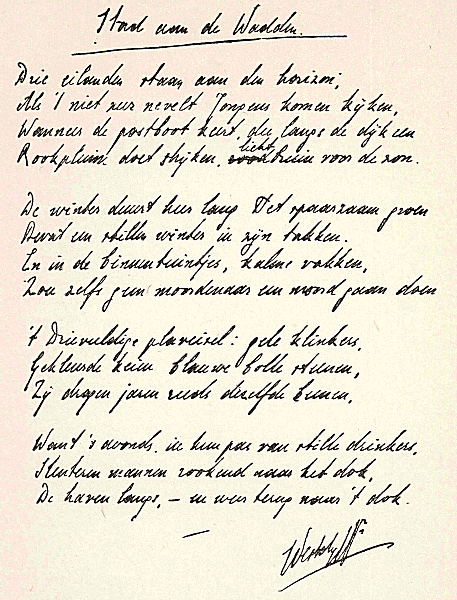 Stad aan de Wadden.
Drie eilanden staan aan den horizon,
Als 't niet zeer nevelt. Jongens komen kijken,
Wanneer de postboot keert, die langs de dijk een
Rookpluim doet strijken, lichtbruin voor de zon.
De winter duurt hier lang. Het spaarzaam groen
Bevat een stille winter in zijn takken.
En in de binnentuintjes, kalme vakken,
Zou zelfs geen moordenaar een moord gaan doen
't Drievuldige plaveisel: gele klinkers,
Gekleurde keien, blauwe bolle steenen,
Zij dragen jaren reeds dezelfde beenen,
Want 's avonds, in hun pas van stille drinkers,
Slenteren mannen rookend naar het dok,
De haven langs, – en weer terug naar 't dok.
Vestdijk